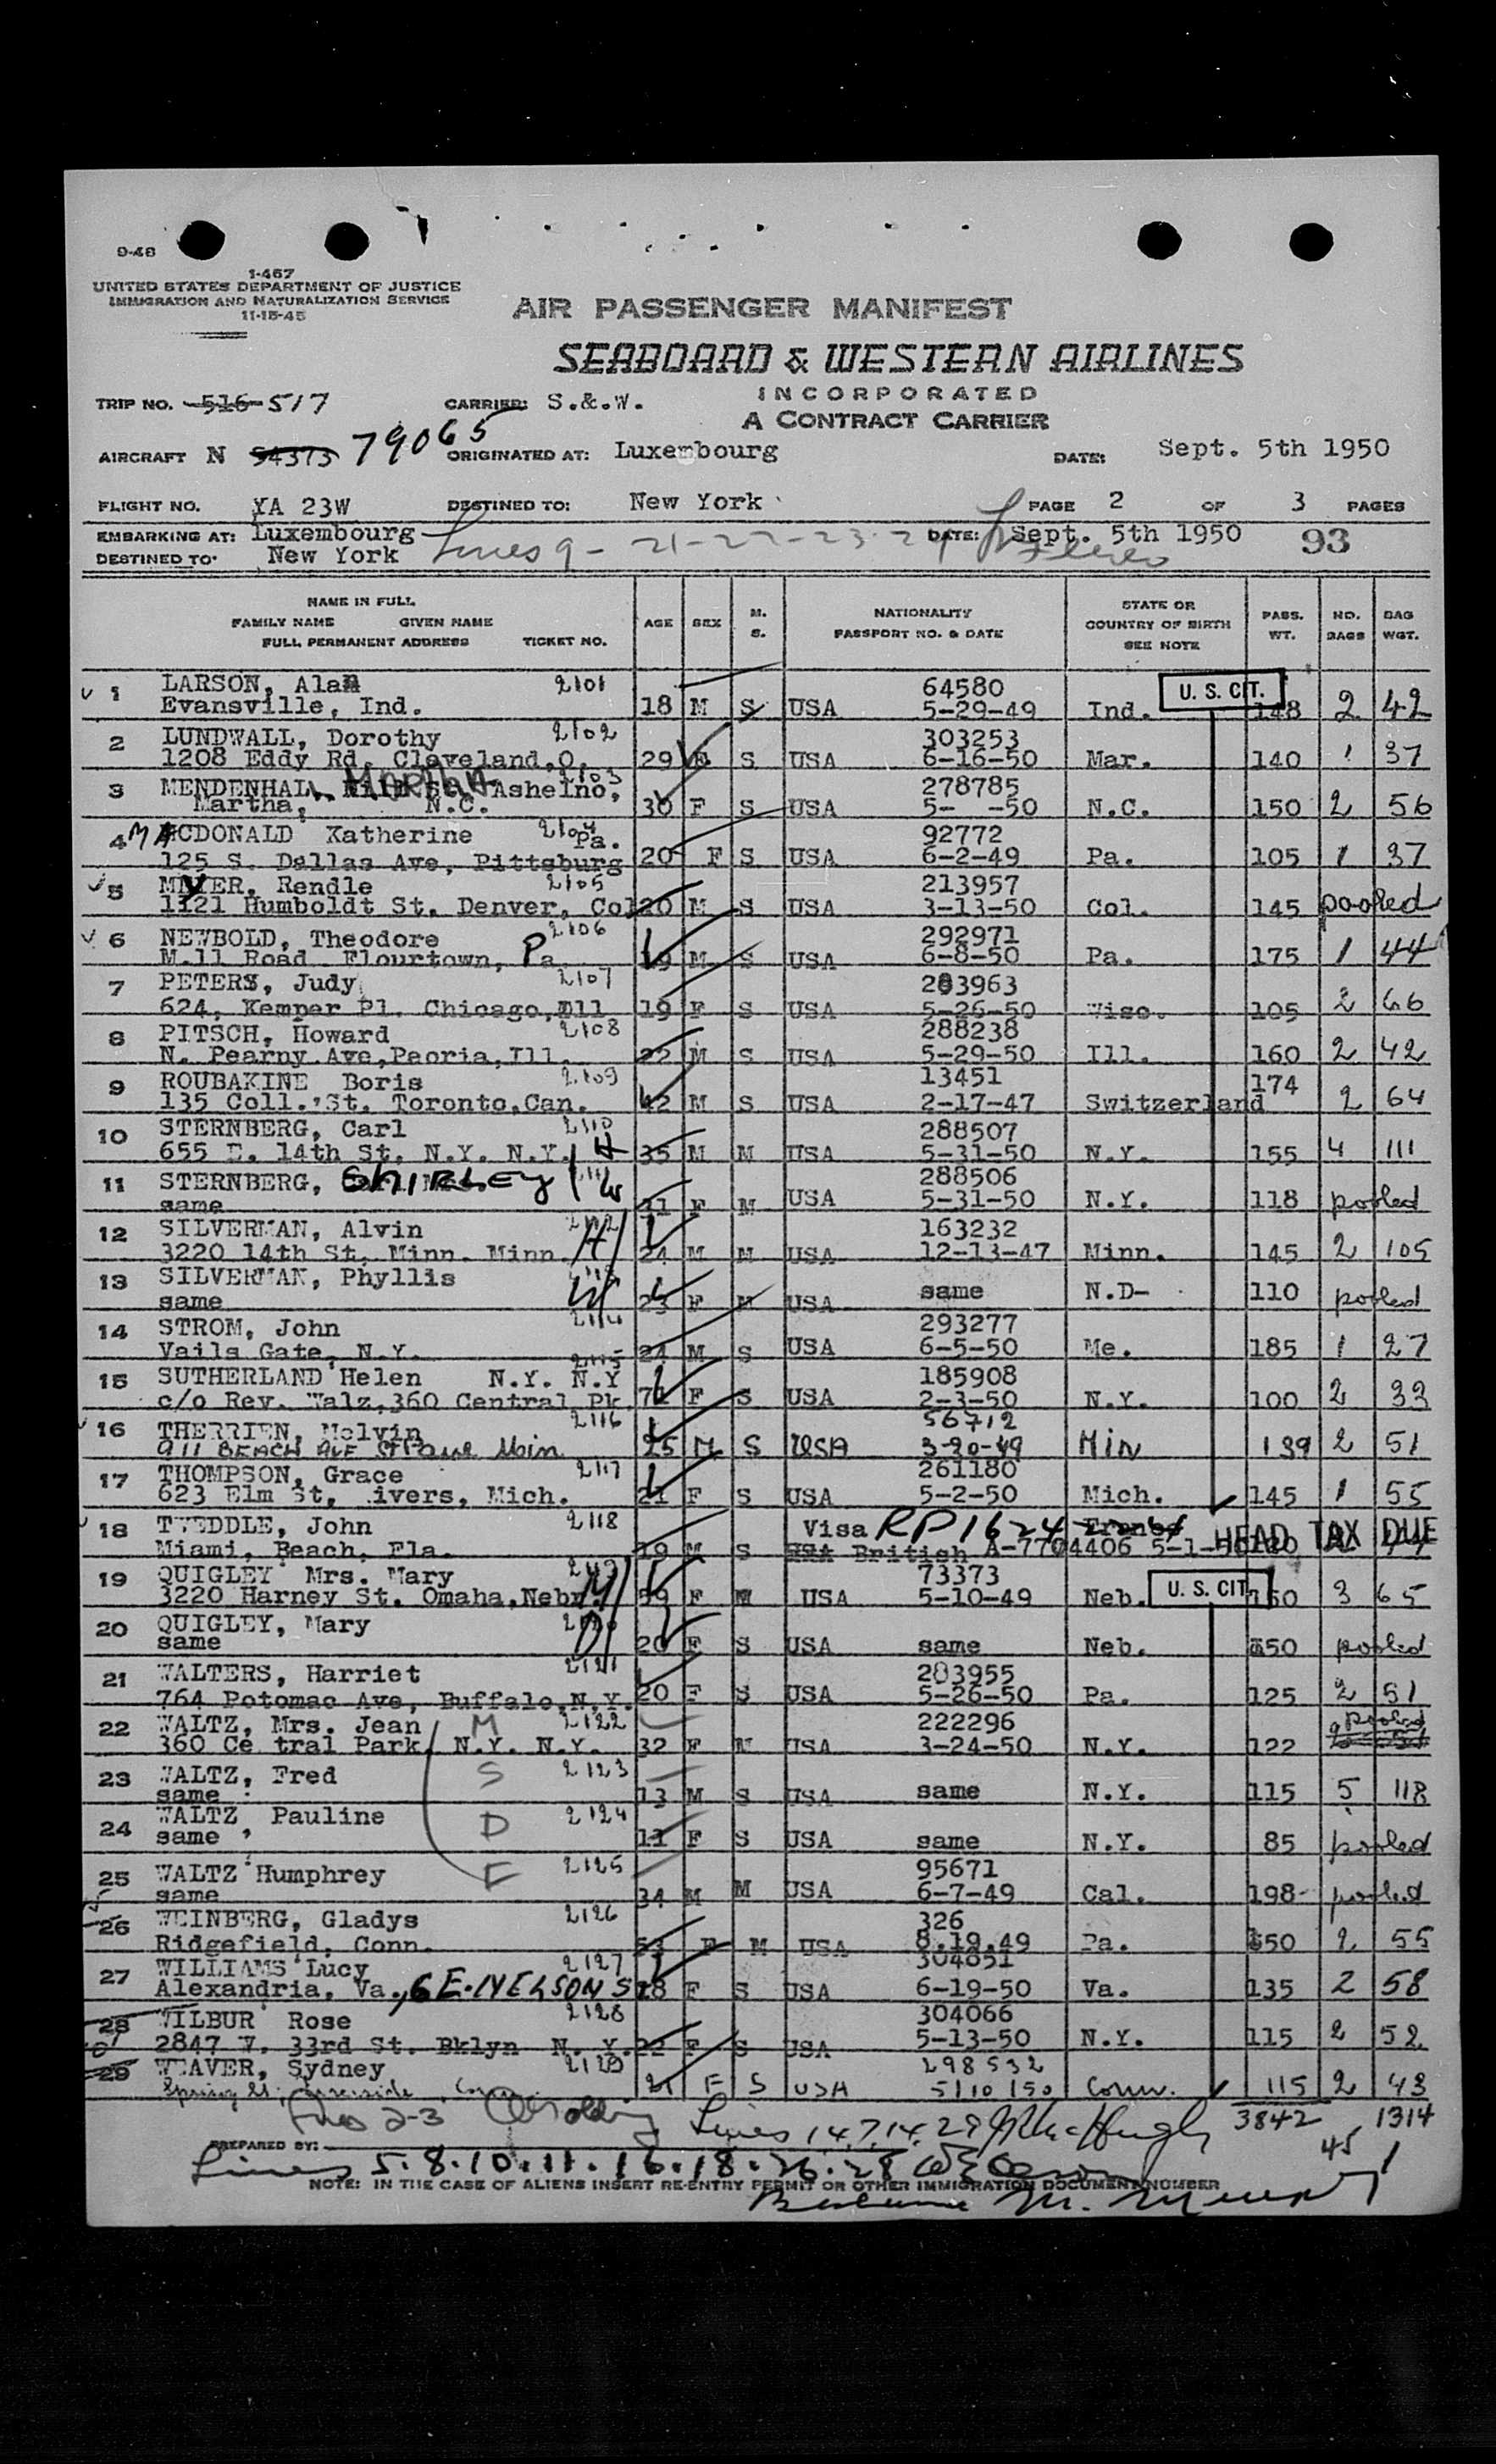 9-48
1-467
UNITED STATES DEPARTMENT OF JUSTICE
IMMIGRATION AND NATURALIZATION SERVICE
11-15-45
AIR PASSENGER MANIFEST
SEABOARD & WESTERN AIRLINES
INCORPORATED
A CONTRACT CARRIER
TRIP NO. 516 517 CARRIER: S.&.W.
AIRCRAFT N 54373 79065 ORIGINATED AT: Luxembourg DATE: Sept. 5th 1950
FLIGHT NO. YA 23W DESTINED TO: New York PAGE 2 OF 3 PAGES
EMBARKING AT: Luxembourg Lines 9- 21-22-23-24 DATE: Sept. 5th 1950 93
DESTINED TO: New York
NAME IN FULL
FAMILY NAME GIVEN NAME
FULL PERMANENT ADDRESS TICKET NO. AGE SEX M. S. NATIONALITY PASSPORT NO. & DATE STATE OR COUNTRY OF BIRTH SEE NOTE PASS. WT. NO. BAGS BAG WGT.
1 LARSON, Alan 2101 64580 U. S. CIT.
Evansville, Ind. 18 M S USA 5-29-49 Ind. 148 2 42
2 LUNDWALL, Dorothy 2102 303253
1208 Eddy Rd. Cleveland,O. 29 F S USA 6-16-50 Mar. 140 1 37
3 MENDENHALL, MARTHA 2103 278785
Martha, N.C. 30 F S USA 5- -50 N.C. 150 2 56
4 MACDONALD Katherine 2104 Pa. 92772
125 S. Dallas Ave, Pittsburg 20 F S USA 6-2-49 Pa. 105 1 37
5 MEYER, Rendle 2105 213957
1121 Humboldt St. Denver, Col 20 M S USA 3-13-50 Col. 145 pooled
6 NEWBOLD, Theodore 2106 292971
M.ll Road Flourtown, Pa 19 M S USA 6-8-50 Pa. 175 1 44
7 PETERS, Judy 2107 283963
624, Kemper Pl. Chicago,Ill 19 F S USA 5-26-50 Wisc. 105 2 66
8 PITSCH, Howard 2108 288238
N. Pearny Ave,Peoria,Ill. 22 M S USA 5-29-50 Ill. 160 2 42
9 ROUBAKINE Boris 2109 13451
135 Coll. St. Toronto,Can. 42 M S USA 2-17-47 Switzerland 174 2 64
10 STERNBERG, Carl 2110 288507
655 E. 14th St. N.Y. N.Y. H 35 M M USA 5-31-50 N.Y. 155 4 111
11 STERNBERG, SHIRLEY W 288506
same 31 F M USA 5-31-50 N.Y. 118 pooled
12 SILVERMAN, Alvin 2112 163232
3220 14th St. Minn. Minn. H 24 M M USA 12-13-47 Minn. 145 2 105
13 SILVERMAN, Phyllis W same
same 23 F M USA N.D- 110 pooled
14 STROM, John 2114 293277
Vails Gate, N.Y. 24 M S USA 6-5-50 Me. 185 1 27
15 SUTHERLAND Helen N.Y. N.Y 2115 185908
c/o Rev. Walz,360 Central Pk. F S USA 2-3-50 N.Y. 100 2 33
16 THERRIEN, Melvin 2116 56712
911 BEACH AVE St Paul Min 25 M S USA 3-20-49 Min 139 2 51
17 THOMPSON, Grace 2117 261180
623 Elm St, .ivers, Mich. 21 F S USA 5-2-50 Mich. 145 1 55
18 TWEDDLE, John 2118 Visa RP 1624 HEAD TAX DUE
Miami, Beach, Fla. 19 M S USA British A-7704406
19 QUIGLEY Mrs. Mary 73373 U. S. CIT.
3220 Harney St. Omaha,Nebr. M 59 F M USA 5-10-49 Neb. 150 3 65
20 QUIGLEY, Mary D
same 20 F S USA same Neb. 150 pooled
21 WALTERS, Harriet 2121 283955
764 Potomac Ave, Buffalo,N.Y. 20 F S USA 5-26-50 Pa. 125 2 51
22 WALTZ, Mrs. Jean M 2122 222296 pooled
360 Ce tral Park, N.Y. N.Y. 32 F M USA 3-24-50 N.Y. 122
23 WALTZ, Fred S 2123
same 13 M S USA same N.Y. 115 5 118
24 WALTZ, Pauline D 2124
same 11 F S USA same N.Y. 85 pooled
25 WALTZ Humphrey F 2125 95671
same 34 M M USA 6-7-49 Cal. 198 pooled
26 WEINBERG, Gladys 2126 326
Ridgefield, Conn. F M USA 8.19.49 Pa. 150 2 55
27 WILLIAMS Lucy 2127 304851
Alexandria, Va., 6 E. NELSON S 18 F S USA 6-19-50 Va. 135 2 58
28 WILBUR Rose 2128 304066
2847 W. 33rd St. Bklyn N. Y. 22 F S USA 5-13-50 N.Y. 115 2 52
29 WEAVER, Sydney 2129 298532
Spring St. Riverside, Conn. 21 F S USA 5/10/50 Conn. 115 2 43
Lines 14,7,14,29 3842 1314
PREPARED BY: 45
Lines 5.8.10.11.16.18.26.28
NOTE: IN THE CASE OF ALIENS INSERT RE-ENTRY PERMIT OR OTHER IMMIGRATION DOCUMENT NUMBER